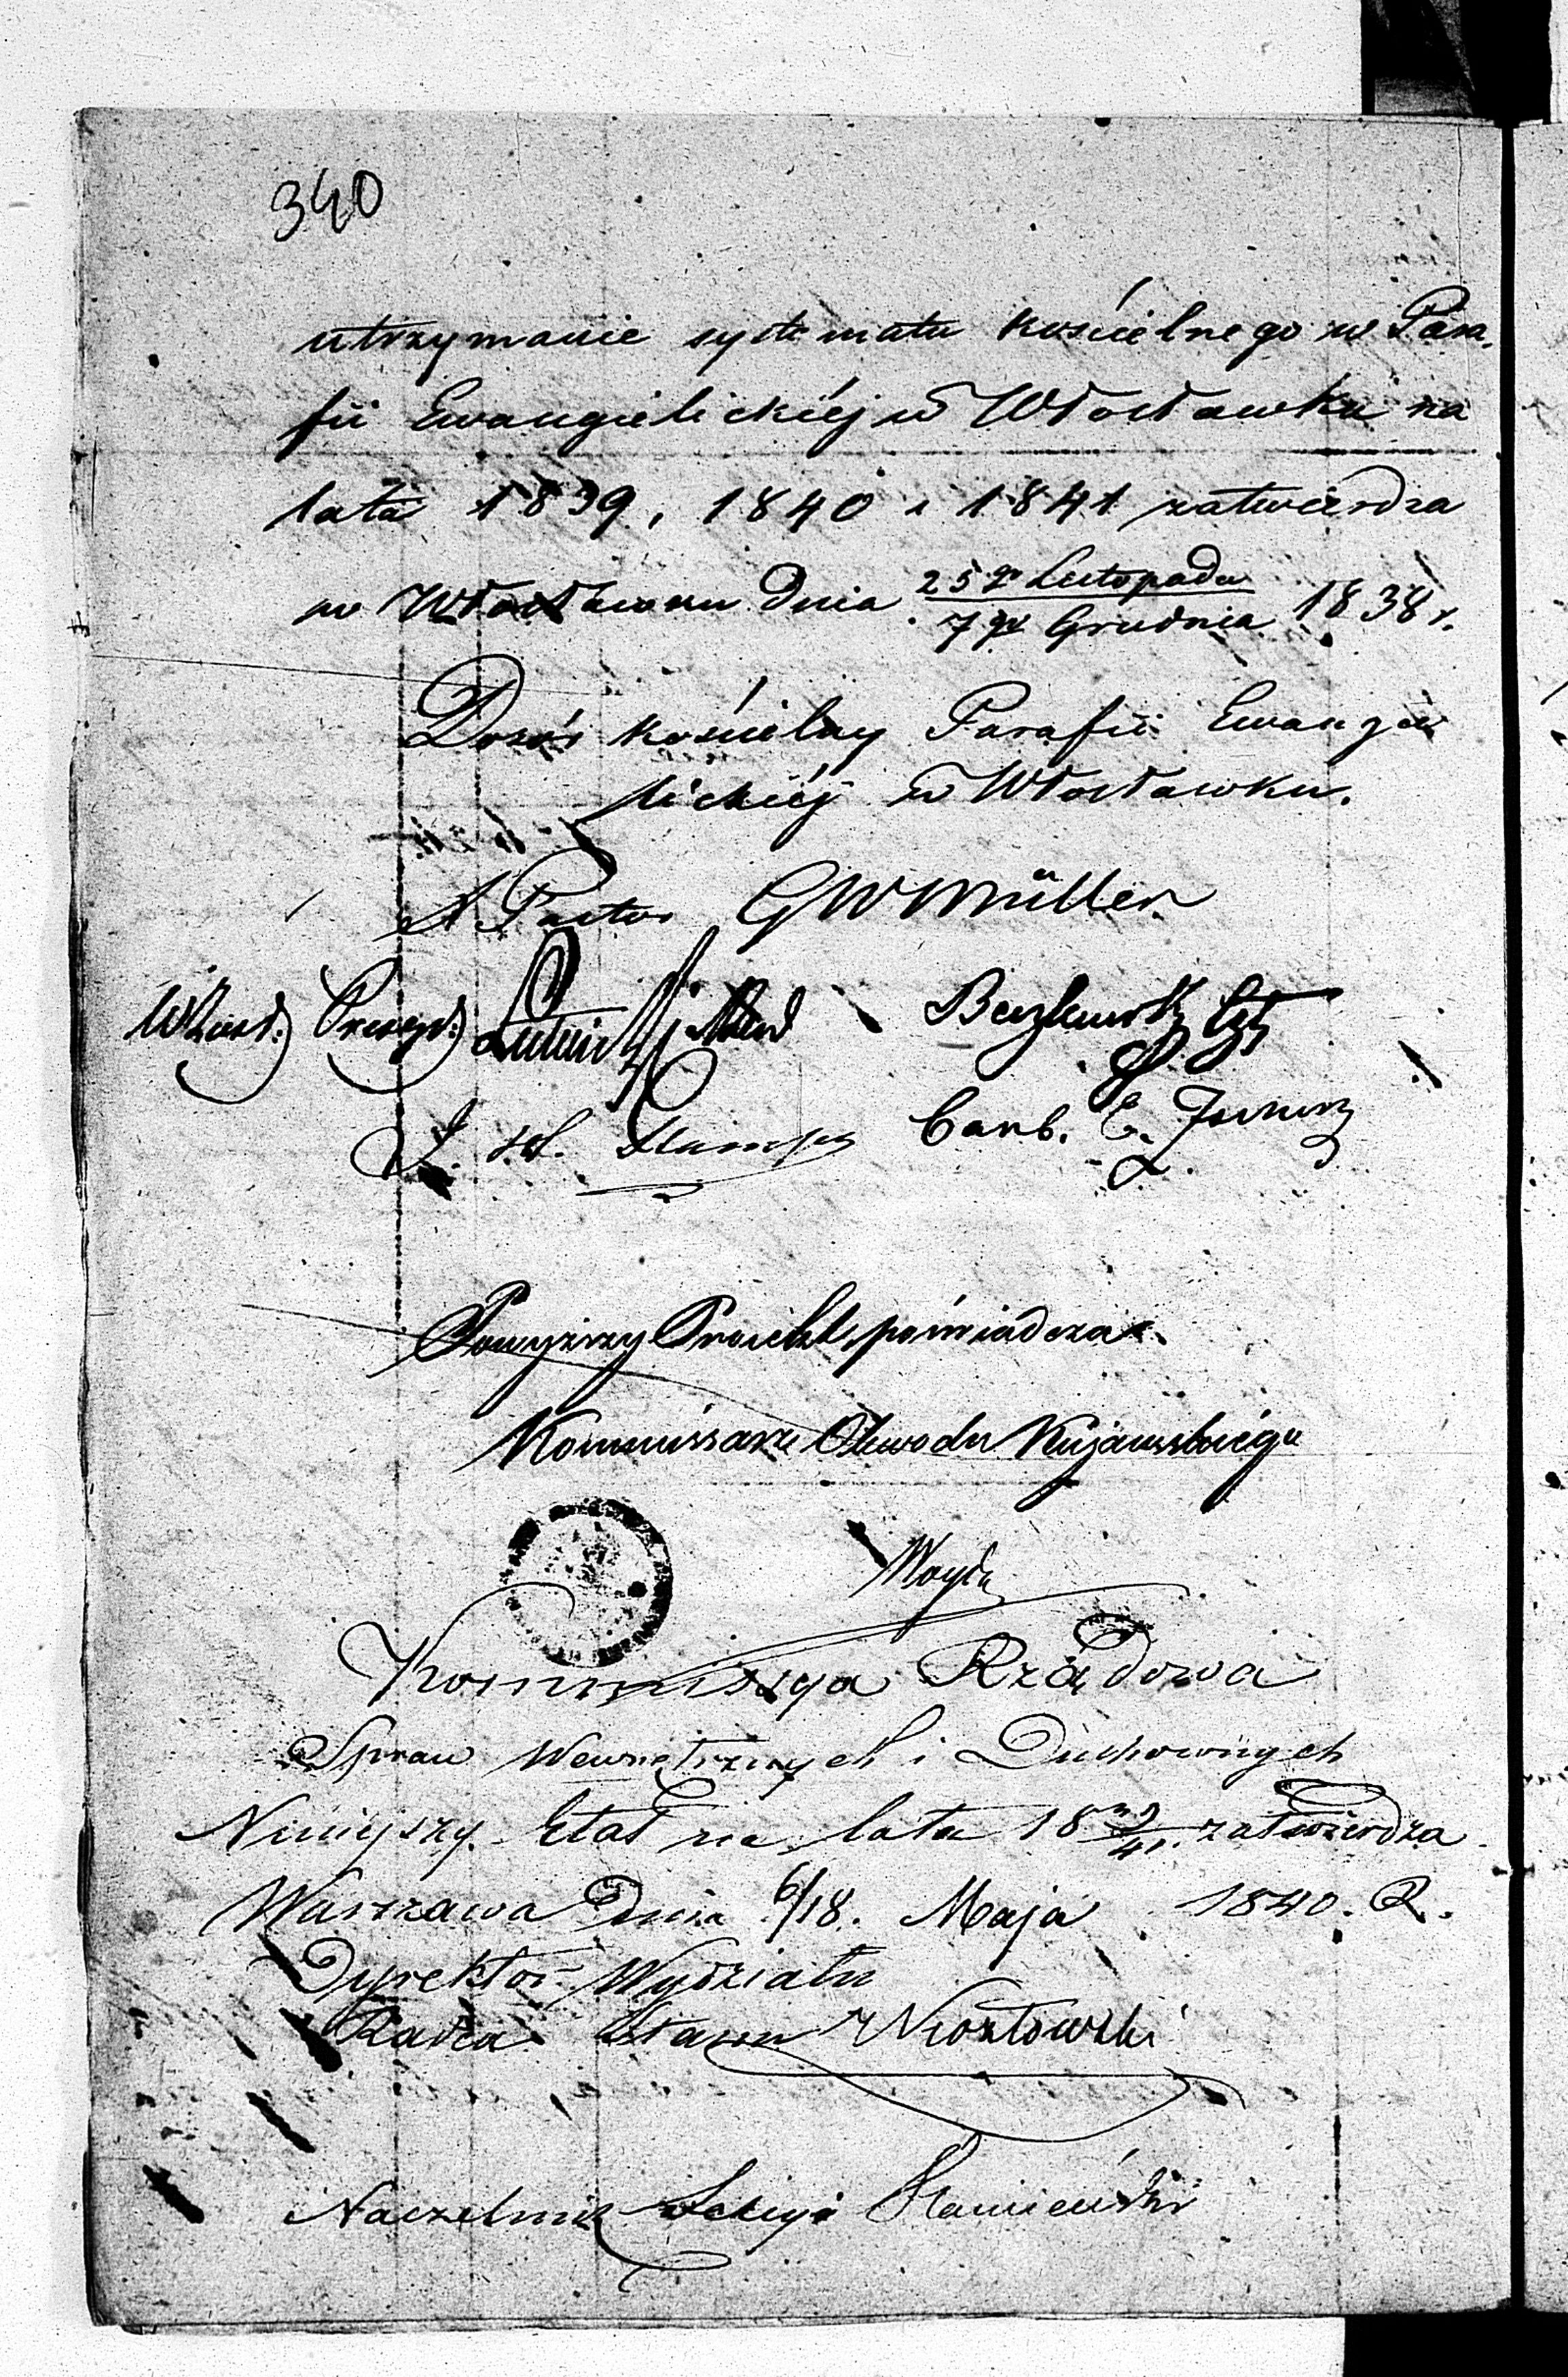 340
utrzymanie systematu kościelnego w Para,
fii Ewangielickiéj w Włocławku na
lata 1839, 1840 i 1841 zatwierdza
w Włocławku dnia 25go Listopada / 7go Grudnia 1838 r.
Dozór kościelny Parafii Ewangie
lickiéj w Włocławku.
Pastor GW Müller
Prezyd:
Powyższy Proiekt poświadcza
Kommissarz Obwodu Kujawskiego
Kommissya Rządowa
Spraw Wewnętrznych i Duchownych
Niniejszy Etat na lata 18 39/41. zatwierdza
Warszawa Dnia 6/18. Maja 1840. R.
Dyrektor Wydziału
Radca Stanu
Naczelnik Sekcyi